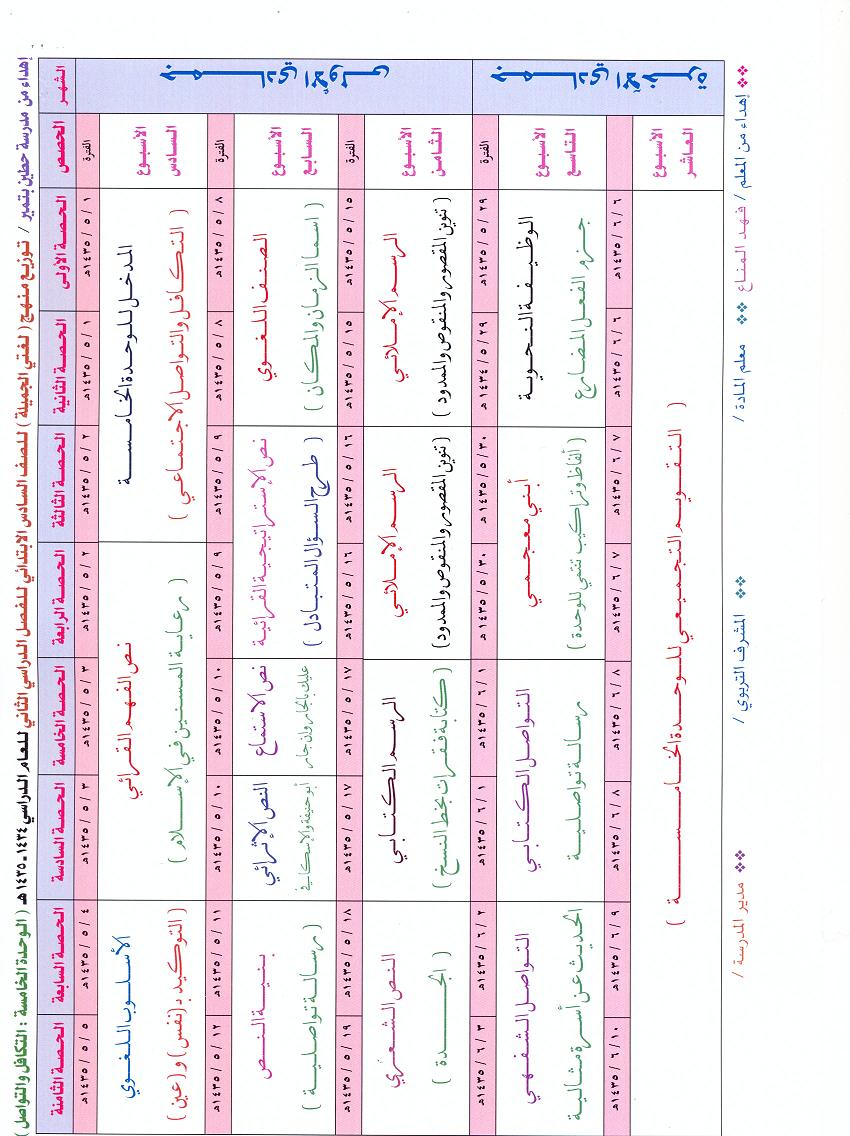 إهداء من مدرسة حطين بتمير / توزيع منهج ( لغتي الجميلة ) للصف السادس الابتدائي للفصل الدراسي الثاني للعام الدراسي ١٤٣٤ـ١٤٣٥ هـ ( الوحدة الخامسة : التكافل والتواصل )
الشهر
الحصص
الحصة الأولى
الحصة الثانية
الحصة الثالثة
الحصة الرابعة
الحصة الخامسة
الحصة السادسة
الحصة السابعة
الحصة الثامنة
جمادي الأولى
الفترة
١ / ٥ / ١٤٣٥هـ
١ / ٥ / ١٤٣٥هـ
٢ / ٥ / ١٤٣٥هـ
٢ / ٥ / ١٤٣٥هـ
٣ / ٥ / ١٤٣٥هـ
٣ / ٥ / ١٤٣٥هـ
٤ / ٥ / ١٤٣٥هـ
٥ / ٥ / ١٤٣٥هـ
الأسبوع
السادس
المدخل للوحدة الخامسة
( التكافل والتواصل الاجتماعي )
نص الفهم القرائي
( رعاية المسنين في الإسلام )
الأسلوب اللغوي
( التوكيد بـ (نفس) و (عين )
الفترة
٨ / ٥ / ١٤٣٥هـ
٨ / ٥ / ١٤٣٥هـ
٩ / ٥ / ١٤٣٥هـ
٩ / ٥ / ١٤٣٥هـ
١٠ / ٥ / ١٤٣٥هـ
١٠ / ٥ / ١٤٣٥هـ
١١ / ٥ / ١٤٣٥هـ
١٢ / ٥ / ١٤٣٥هـ
الأسبوع
السابع
الصنف اللغوي
( اسما الزمان والمكان )
نص الإستراتيجية القرائية
( طرح السؤال المتبادل )
نص الاستماع
عليك بالجار وإن جار
النص الإثرائي
أبو حنيفة والإسكافي
بنية النص
( رسالة تواصلية )
الفترة
١٥ / ٥ / ١٤٣٥هـ
١٥ / ٥ / ١٤٣٥هـ
١٦ / ٥ / ١٤٣٥هـ
١٦ / ٥ / ١٤٣٥هـ
١٧ / ٥ / ١٤٣٥هـ
١٧ / ٥ / ١٤٣٥هـ
١٨ / ٥ / ١٤٣٥هـ
١٩ / ٥ / ١٤٣٥هـ
الأسبوع
الثامن
الرسم الإملائي
(تنوين المقصور والمنقوص والممدود )
الرسم الإملائي
(تنوين المقصور والمنقوص والممدود)
الرسم الكتابي
( كتابة فقرات بخط النسخ )
النص الشعري
( الجدة )
جمادي الآخرة
الفترة
٢٩ / ٥ / ١٤٣٥هـ
٢٩ / ٥ / ١٤٣٤هـ
٣٠ / ٥ / ١٤٣٥هـ
٣٠ / ٥ / ١٤٣٥هـ
١ / ٦ / ١٤٣٥هـ
١ / ٦ / ١٤٣٥هـ
٢ / ٦ / ١٤٣٥هـ
٣ / ٦ / ١٤٣٥هـ
الأسبوع
التاسع
الوظيفة النحوية
جزم الفعل المضارع
أبني معجمي
( ألفاظ وتراكيب تنتمي للوحدة )
التواصل الكتابي
رسالة تواصلية
التواصل الشفهي
الحديث عن أسرة مثالية
٦ / ٦ / ١٤٣٥هـ
٦ / ٦ / ١٤٣٥هـ
٧ / ٦ / ١٤٣٥هـ
٧ / ٦ / ١٤٣٥هـ
٨ / ٦ / ١٤٣٥هـ
٨ / ٦ / ١٤٣٥هـ
٩ / ٦ / ١٤٣٥هـ
١٠ / ٦ / ١٤٣٥هـ
الأسبوع
العاشر
( التقويم التجميعي للوحدة الخامسة )
إهداء من المعلم / فهد المناع
معلم المادة /
المشرف التربوي /
مدير المدرسة /